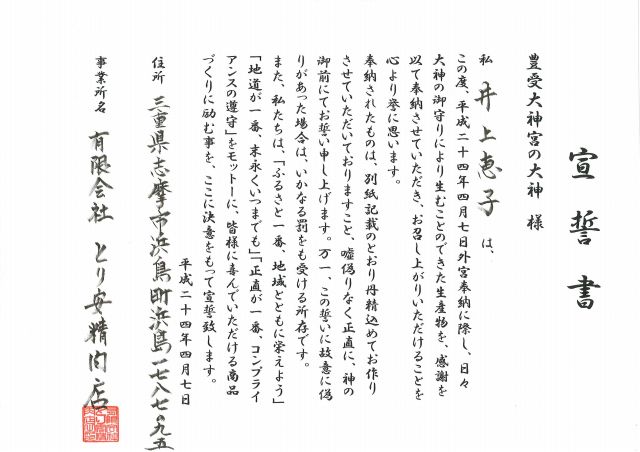 宣誓書
豊受大神宮の大神 様
私 井上恵子 は、
この度、平成二十四年四月七日外宮奉納に際し、日々
大神の御守りにより生むことのできた生産物を、感謝を
以て奉納させていただき、お召し上がりいただけることを
心より誉に思います。
奉納されたものは、別紙記載のとおり丹精込めてお作り
させていただいておりますこと、嘘偽りなく正直に、神の
御前にてお誓い申し上げます。万一、この誓いに故意に偽
りがあった場合は、いかなる罰をも受ける所存です。
また、私たちは、「ふるさと一番、地域とともに栄えよう」
「地道が一番、末永くいつまでも」「正直が一番、コンプライ
アンスの遵守」をモットーに、皆様に喜んでいただける商品
づくりに励む事を、ここに決意をもって宣誓致します。
平成二十四年四月七日
住所 三重県志摩市浜島町浜島一七八七の九五
事業所名 有限会社 とり安精肉店